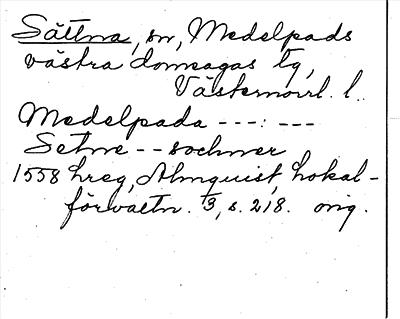 Sättna, sn, Medelpads
västra domsagas tg,
Västernorrl. l.
Medelpada ---: ---
Setne -- sochner
1558 hreg, Almquist, Lokal-
förvaltn. 3, s. 218. orig.